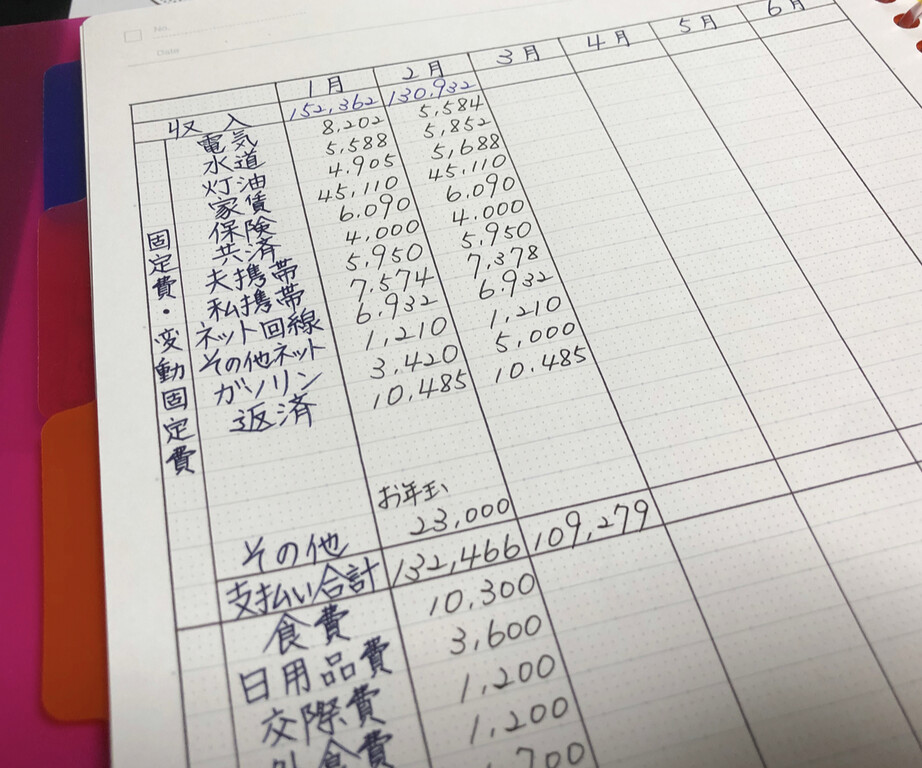 No.
Date
1月 2月 3月 4月 5月 6月
収入 152,362 130,932
電気 8,202 5,584
水道 5,588 5,852
灯油 4,905 5,688
家賃 45,110 45,110
保険 6,090 6,090
共済 4,000 4,000
夫携帯 5,950 5,950
私携帯 7,574 7,378
ネット回線 6,932 6,932
その他ネット 1,210 1,210
ガソリン 3,420 5,000
返済 10,485 10,485
固定費・変動固定費
お年玉
その他 23,000
支払い合計 132,466 109,279
食費 10,300
日用品費 3,600
交際費 1,200
外食費 1,200
700